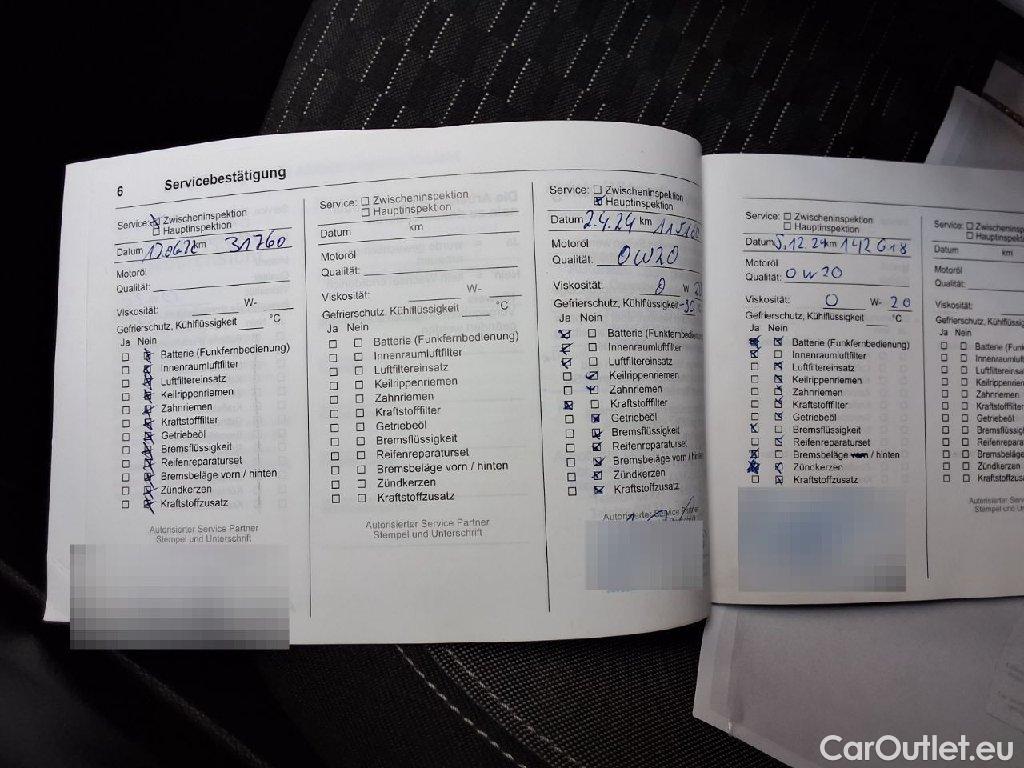 6 Servicebestätigung
Service: Zwischeninspektion
Hauptinspektion
Datum km 31760
Motoröl
Qualität:
Viskosität: W-
Gefrierschutz, Kühlflüssigkeit °C
Ja Nein
Batterie (Funkfernbedienung)
Innenraumluftfilter
Luftfiltereinsatz
Keilrippenriemen
Zahnriemen
Kraftstofffilter
Getriebeöl
Bremsflüssigkeit
Reifenreparaturset
Bremsbeläge vorn / hinten
Zündkerzen
Kraftstoffzusatz
Autorisierter Service Partner
Stempel und Unterschrift
Service: Zwischeninspektion
Hauptinspektion
Datum km
Motoröl
Qualität:
Viskosität: W-
Gefrierschutz, Kühlflüssigkeit °C
Ja Nein
Batterie (Funkfernbedienung)
Innenraumluftfilter
Luftfiltereinsatz
Keilrippenriemen
Zahnriemen
Kraftstofffilter
Getriebeöl
Bremsflüssigkeit
Reifenreparaturset
Bremsbeläge vorn / hinten
Zündkerzen
Kraftstoffzusatz
Autorisierter Service Partner
Stempel und Unterschrift
Service: Zwischeninspektion
Hauptinspektion
Datum 2.4.24 km
Motoröl
Qualität: 0W20
Viskosität: 0 W
Gefrierschutz, Kühlflüssigkeit -30 °C
Ja Nein
Batterie (Funkfernbedienung)
Innenraumluftfilter
Luftfiltereinsatz
Keilrippenriemen
Zahnriemen
Kraftstofffilter
Getriebeöl
Bremsflüssigkeit
Reifenreparaturset
Bremsbeläge vorn / hinten
Zündkerzen
Kraftstoffzusatz
Autorisierter Service Partner
Service: Zwischeninspektion
Hauptinspektion
Datum 5.12.24 km 142618
Motoröl
Qualität: 0W20
Viskosität: 0 W- 20
Gefrierschutz, Kühlflüssigkeit °C
Ja Nein
Batterie (Funkfernbedienung)
Innenraumluftfilter
Luftfiltereinsatz
Keilrippenriemen
Zahnriemen
Kraftstofffilter
Getriebeöl
Bremsflüssigkeit
Reifenreparaturset
Bremsbeläge vorn / hinten
Zündkerzen
Kraftstoffzusatz
Service:
Datum km
Motoröl
Qualität:
Viskosität:
Gefrierschutz, Kühlflüssig
Ja Nein
Batterie (Funkf
Innenraumluft
Luftfiltereinsa
Keilrippenriem
Zahnriemen
Kraftstofffilter
Getriebeöl
Bremsflüssigk
Reifenreparatu
Bremsbeläge v
Zündkerzen
Kraftstoffzusa
Autorisierter Servic
Stempel und Unters
CarOutlet.eu